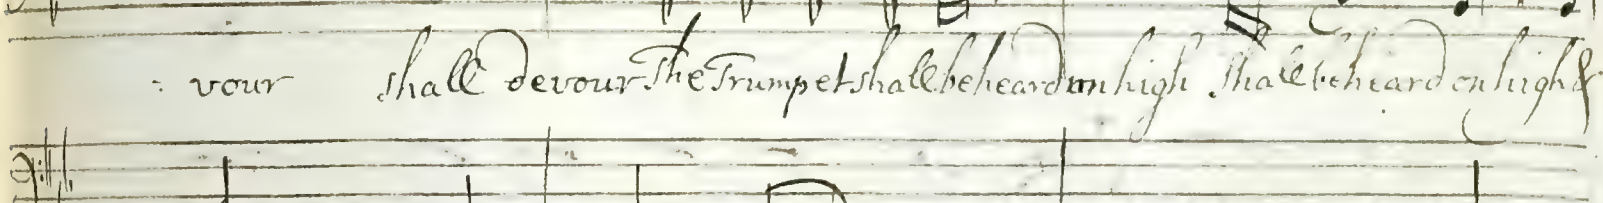 : vour shall devour The Trumpet shall be heard on high shall be heard on high &